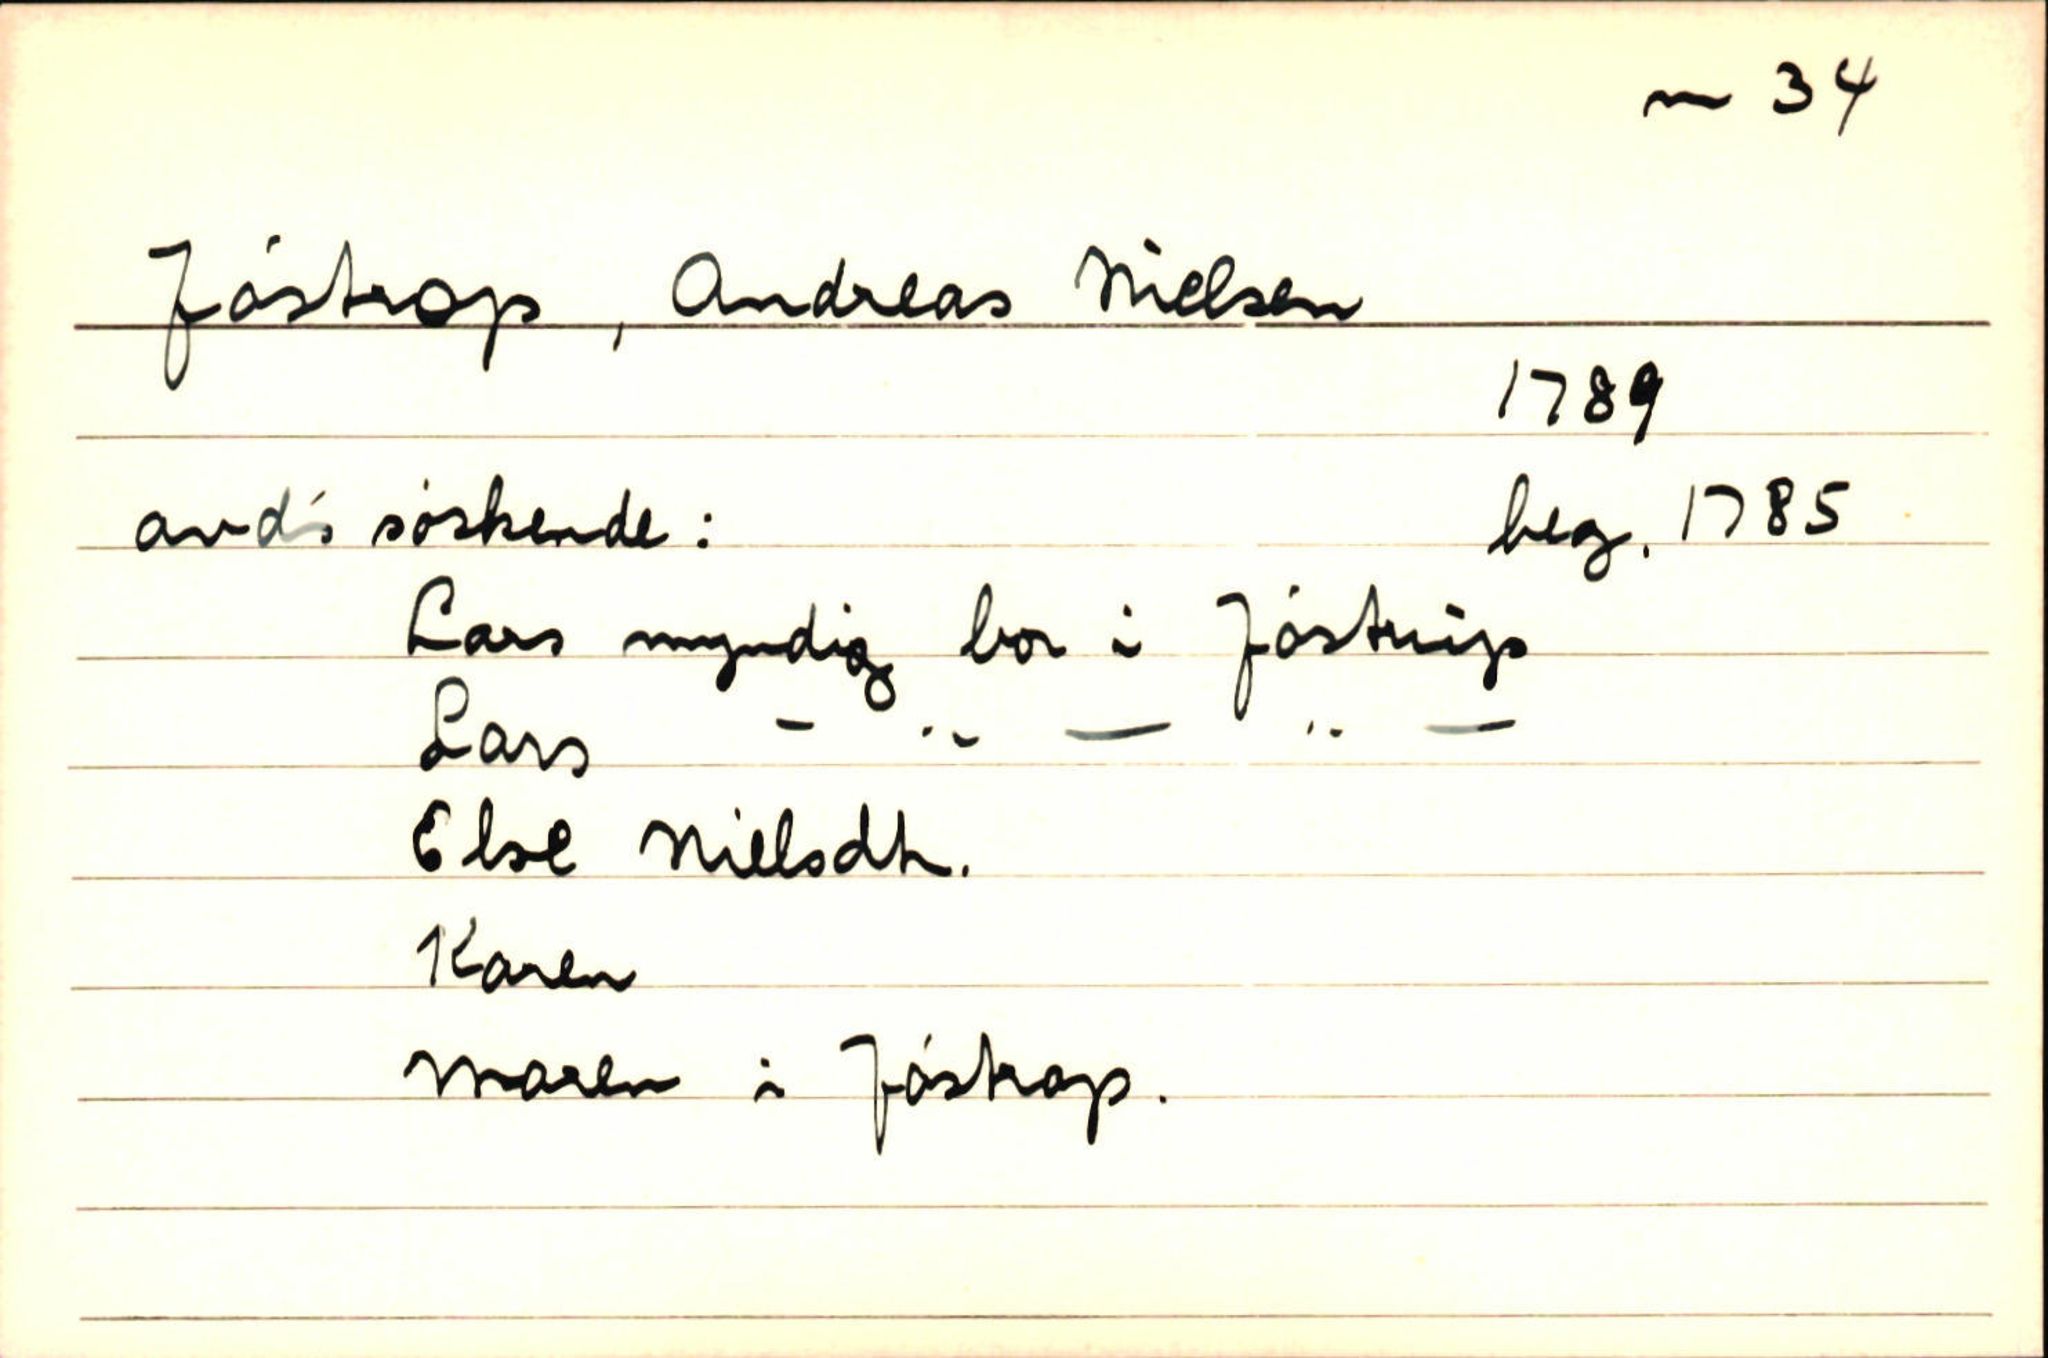 m 34
Jóstrop, Andreas Nielsen
1789
avd's söskende: beg. 1785
Lars myndig bor i Jóstrup
Lars - " — " —
Else Nielsdtr.
Karen
Maren i Jóstrop.